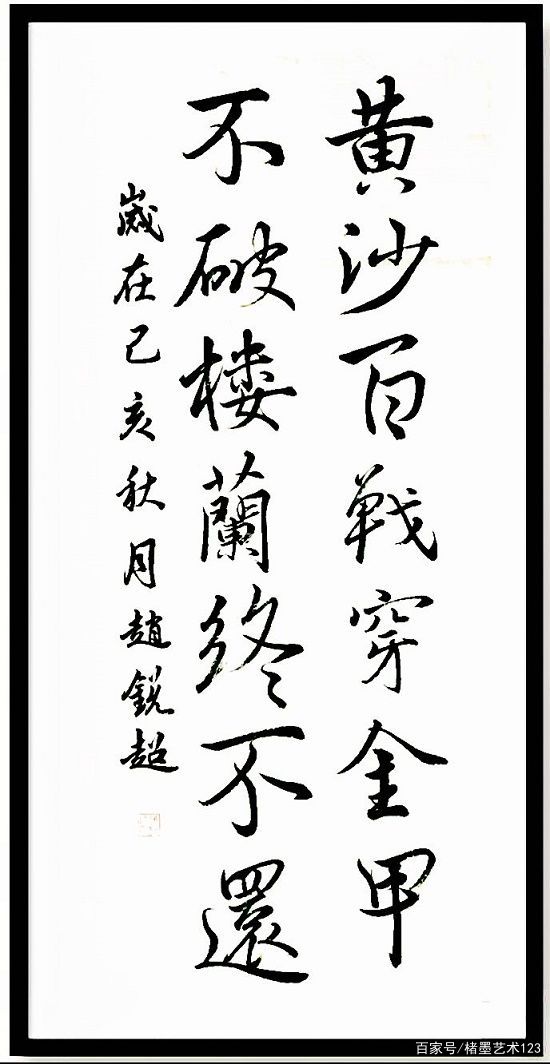 黄沙百戰穿金甲
不破楼蘭终不還
歲在己亥秋月趙銳超
百家号/楮墨艺术123